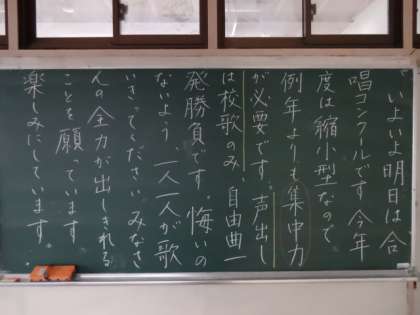 いよいよ明日は合
唱コンクールです。今年
度は縮小型なので
例年よりも集中力
が必要です。声出し
は校歌のみ、自由曲一
発勝負です。悔いの
ないよう、一人一人が歌
いきってください。みなさ
んの全力が出しきれる
ことを願っています。
楽しみにしています。